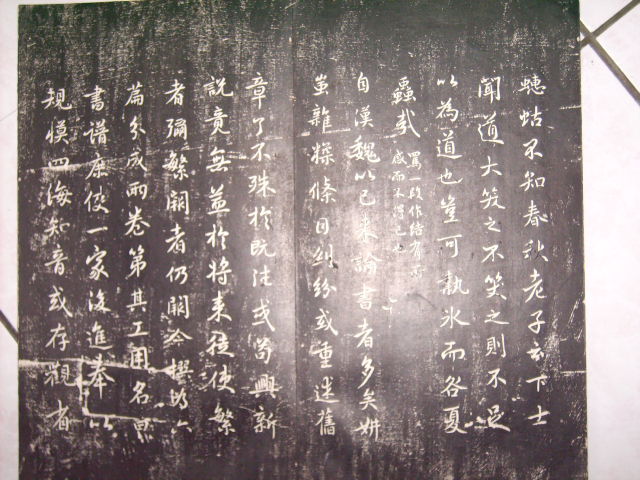 蟪蛄不知春秋老子云下士
聞道大笑之不笑之則不足
以為道也豈可執冰而咎夏
蟲哉
罵一段作結有所
感而不得已也
自漢魏以已來論書者多矣妍
蚩雜糅條目糾紛或重述舊
章了不殊於既往或苟興新
說竟無益於將來徒使繁
者彌繁闕者仍闕今撰為六
篇分成兩卷第其工用名曰
書譜庶使一家後進奉以
規模四海知音或存觀省